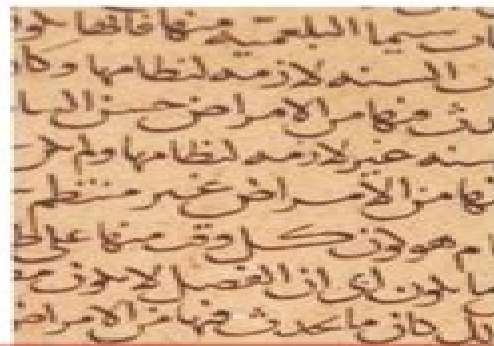 سيما البلغمية منها فانها
السنه لازمه لنظامها وكا
منها من الامراض حسن ال
سنه غير لازمه لنظامها ولم
من الامراض غير منتظم
هو لون كل وقت منها على
لون اى ان الفصل لا يلون
كان ما يحدث فيها من الامراض